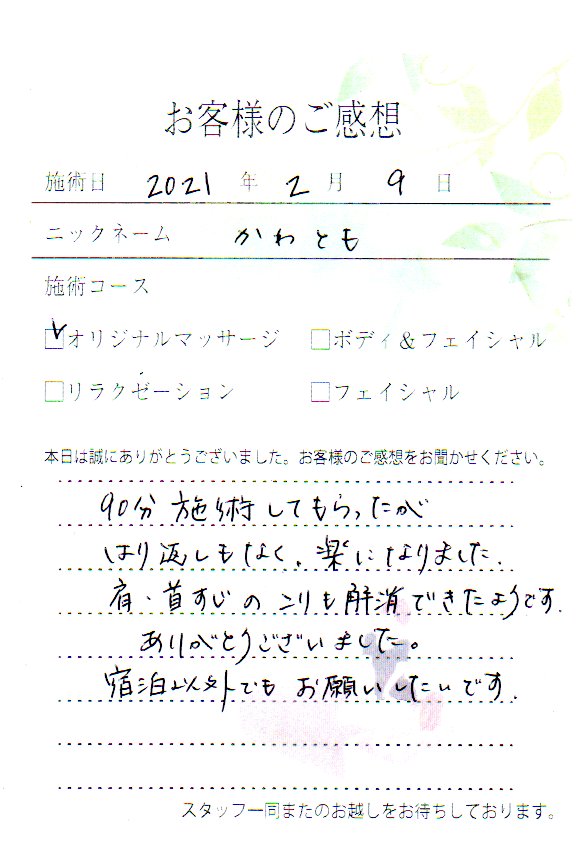 お客様のご感想
施術日 2021 年 2 月 9 日
ニックネーム かわとも
施術コース
オリジナルマッサージ ボディ&フェイシャル
リラクゼーション フェイシャル
本日は誠にありがとうございました。お客様のご感想をお聞かせください。
90分 施術してもらったが
はり返しもなく、楽になりました.
肩・首すじのこりも解消できたようです.
ありがとうございました。
宿泊以外でもお願いしたいです.
スタッフ一同またのお越しをお待ちしております。